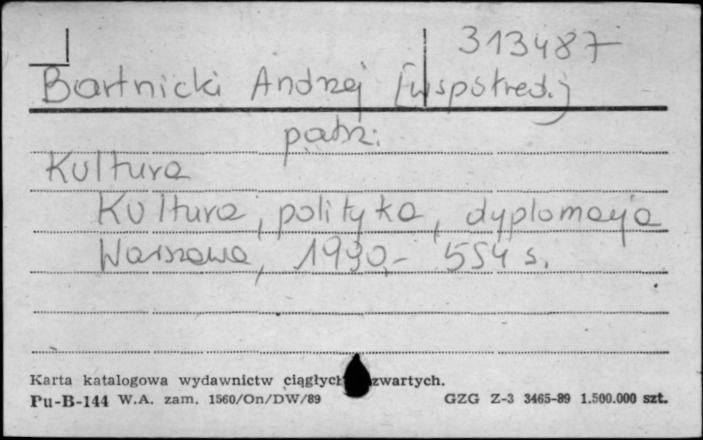 313487
Bartnicki Andrzej [współred.]
patrz:
Kultura
Kultura, polityka, dyplomacja
Warszawa, 1990,- 554 s.
Karta katalogowa wydawnictw ciągłych zwartych.
Pu-B-144 W.A. zam. 1560/On/DW/89 GZG Z-3 3465-89 1.500.000 szt.